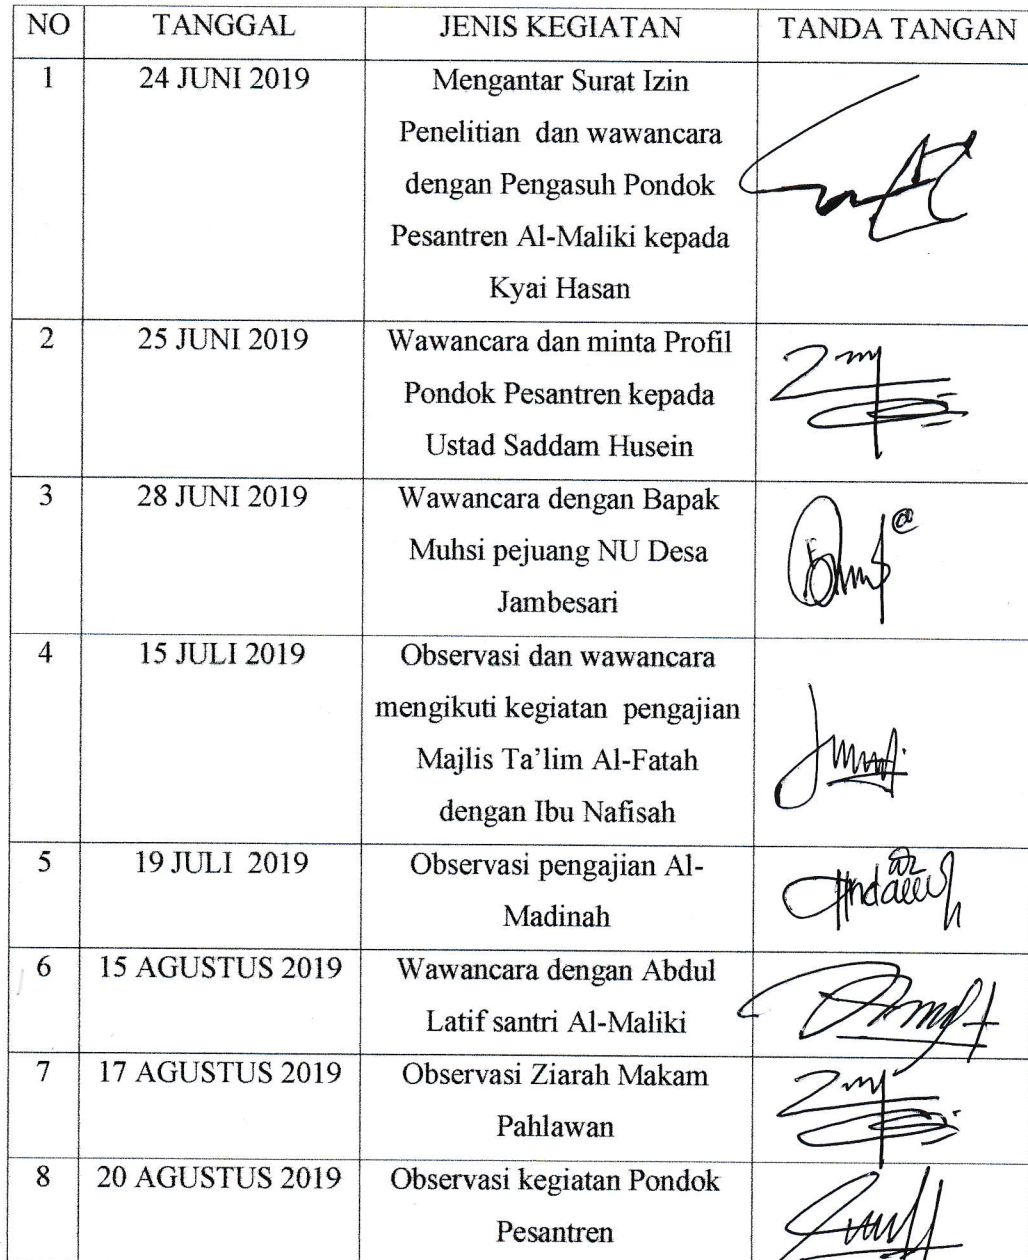 NO TANGGAL JENIS KEGIATAN TANDA TANGAN
1 24 JUNI 2019 Mengantar Surat Izin
Penelitian dan wawancara
dengan Pengasuh Pondok
Pesantren Al-Maliki kepada
Kyai Hasan
2 25 JUNI 2019 Wawancara dan minta Profil
Pondok Pesantren kepada
Ustad Saddam Husein
3 28 JUNI 2019 Wawancara dengan Bapak
Muhsi pejuang NU Desa
Jambesari
4 15 JULI 2019 Observasi dan wawancara
mengikuti kegiatan pengajian
Majlis Ta’lim Al-Fatah
dengan Ibu Nafisah
5 19 JULI 2019 Observasi pengajian Al-
Madinah
6 15 AGUSTUS 2019 Wawancara dengan Abdul
Latif santri Al-Maliki
7 17 AGUSTUS 2019 Observasi Ziarah Makam
Pahlawan
8 20 AGUSTUS 2019 Observasi kegiatan Pondok
Pesantren